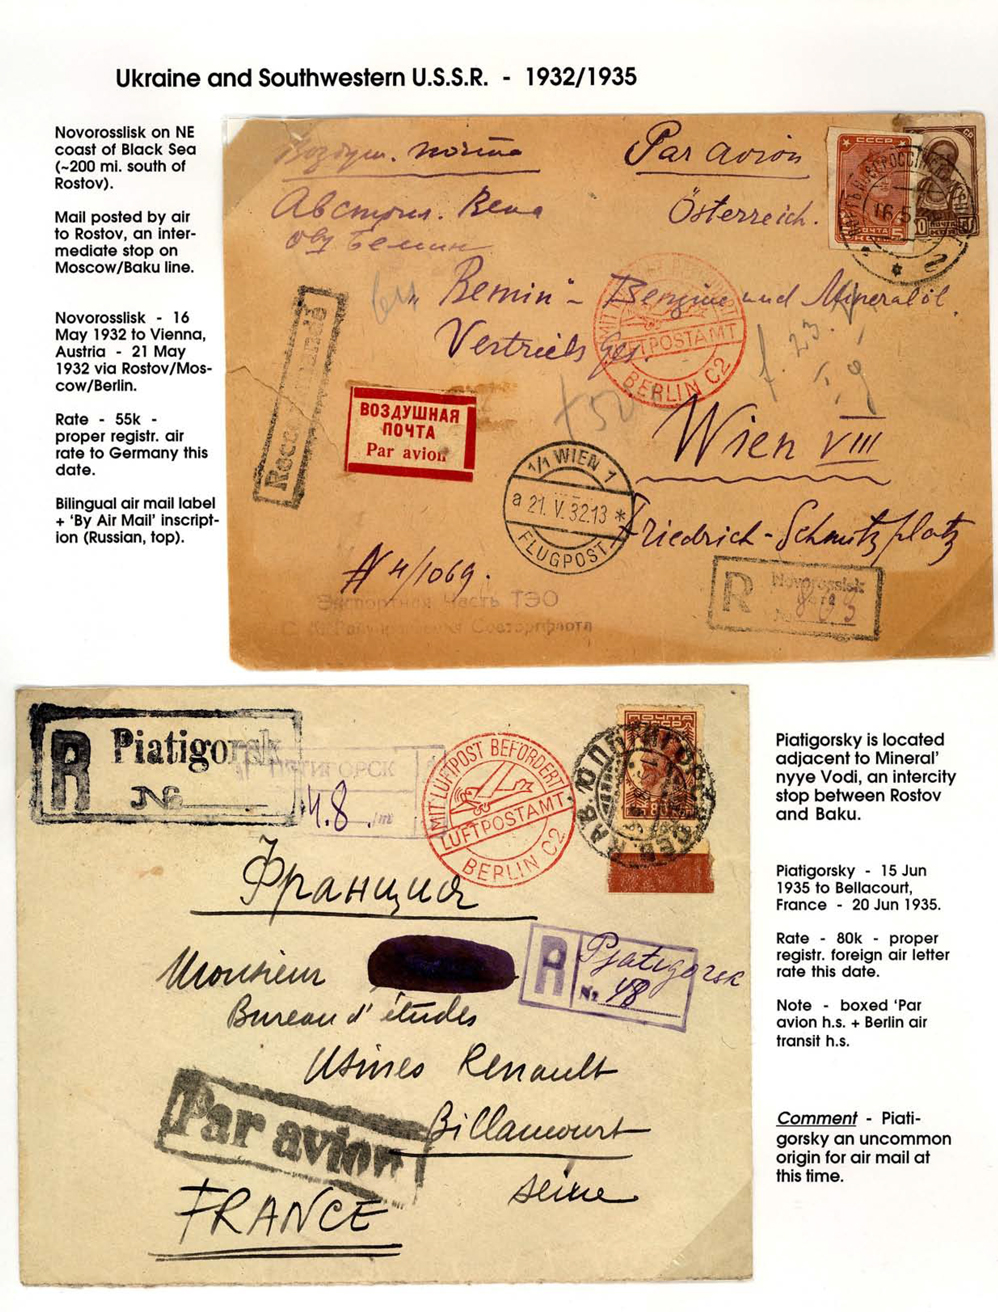 Ukraine and Southwestern U.S.S.R. - 1932/1935
Novorosslisk on NE
coast of Black Sea
(~200 mi. south of
Rostov).
Mail posted by air
to Rostov, an inter-
mediate stop on
Moscow/Baku line.
Novorosslisk - 16
May 1932 to Vienna,
Austria - 21 May
1932 via Rostov/Mos-
cow/Berlin.
Rate - 55k -
proper registr. air
rate to Germany this
date.
Bilingual air mail label
+ 'By Air Mail' inscript-
ion (Russian, top).
Воздуш. почта
Par avion
Австрия. Вена
Österreich.
"Bemin" - Benzine und Mineralöl
Vertriebs Ges.
Wien VIII
Friedrich-Schmitzplatz
N 4/1069.
ВОЗДУШНАЯ
ПОЧТА
Par avion
MIT LUFTPOST BEFÖRDERT
LUFTPOSTAMT
BERLIN C2
1/1 WIEN 1
a 21.V.32.13 *
FLUGPOST
R Novorossisk
803
Экспортная Часть ТЭО
Совторгфлота
СССР
ПОЧТА
5
R Piatigorsk
No
ПЯТИГОРСК
48
MIT LUFTPOST BEFÖRDERT
LUFTPOSTAMT
BERLIN C2
ПОЧТА
Франция
Monsieur
Bureau d'études
Usines Renault
Billancourt
Seine
R Pjatigorsk
No 48
Par avion
FRANCE
Piatigorsky is located
adjacent to Mineral'
nyye Vodi, an intercity
stop between Rostov
and Baku.
Piatigorsky - 15 Jun
1935 to Bellacourt,
France - 20 Jun 1935.
Rate - 80k - proper
registr. foreign air letter
rate this date.
Note - boxed 'Par
avion h.s. + Berlin air
transit h.s.
Comment - Piati-
gorsky an uncommon
origin for air mail at
this time.